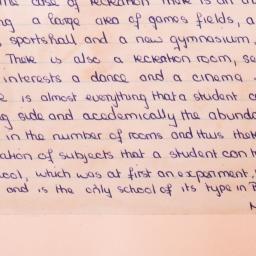 case of recreation there is an
a large area of games fields, a
sportshall and a new gymnasium.
There is also a recreation room, se
interests a dance and a cinema
is almost everything that a student c
side and academically the abund
in the number of rooms and thus the
ation of subjects that a student can t
ool, which was at first an experiment,
and is the only school of its type in